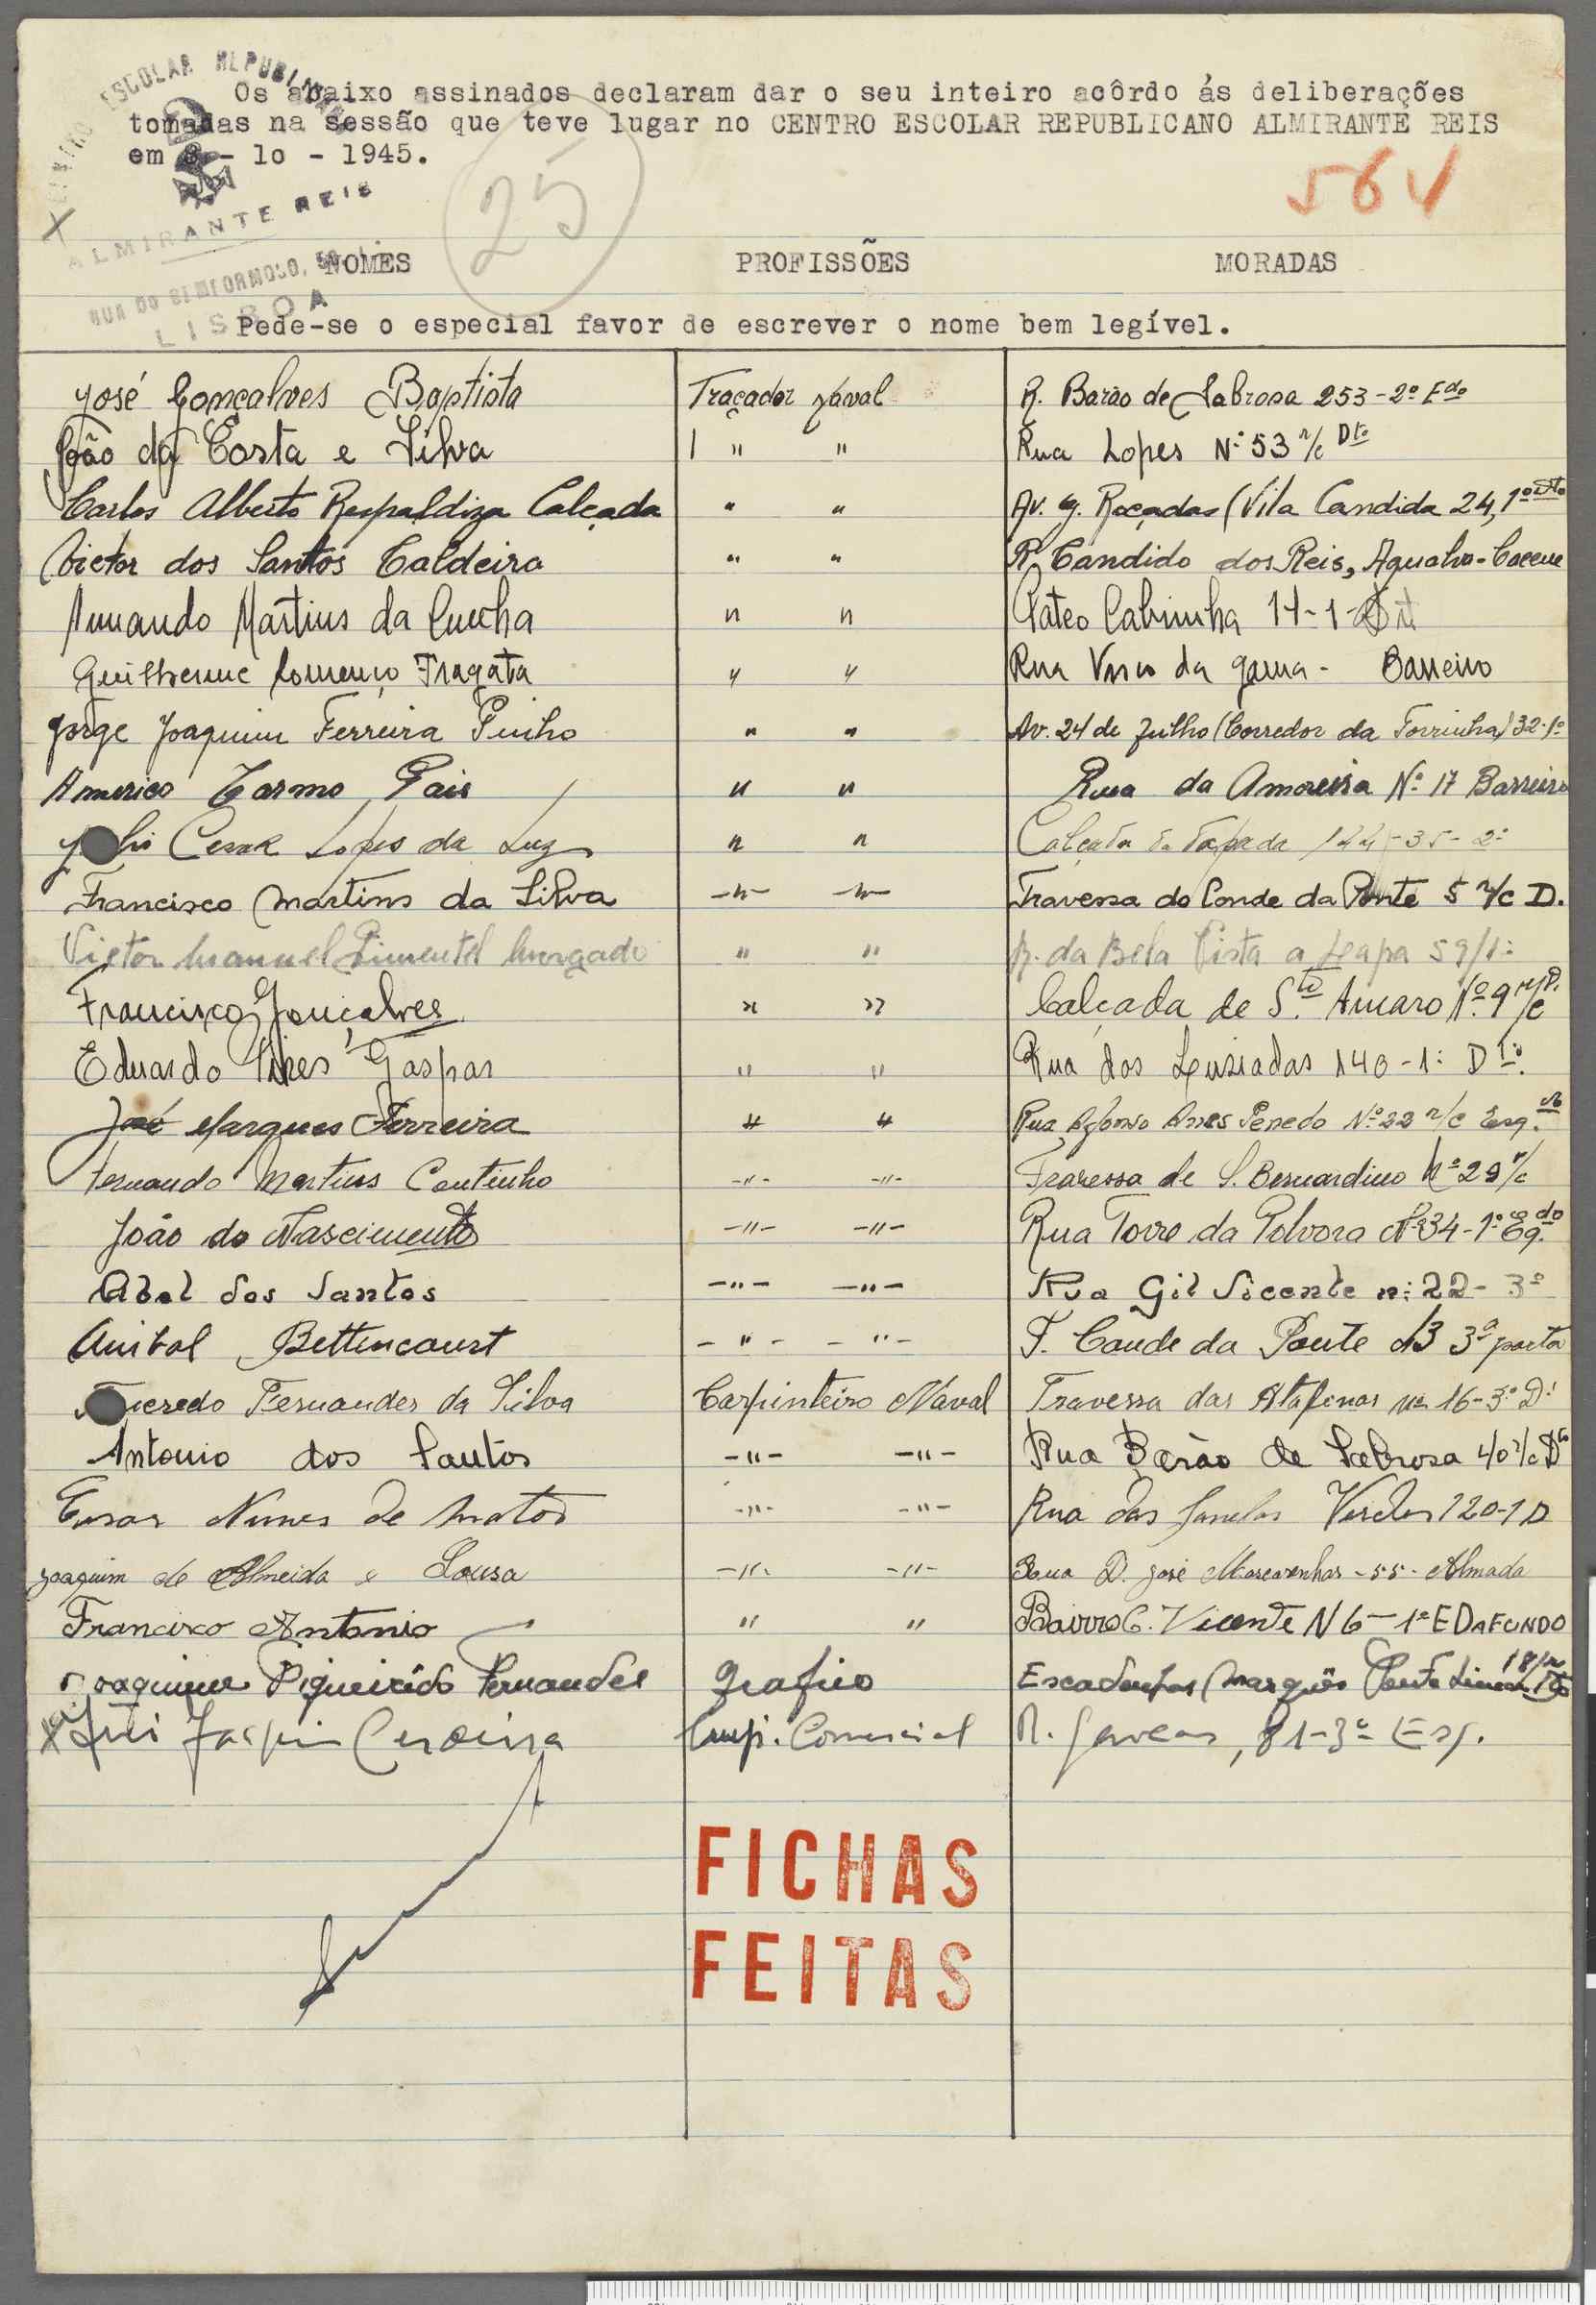 CENTRO ESCOLAR REPUBLICANO
ALMIRANTE REIS
RUA DO BEMFORMOSO, 50
LISBOA
Os abaixo assinados declaram dar o seu inteiro acôrdo ás deliberações
tomadas na sessão que teve lugar no CENTRO ESCOLAR REPUBLICANO ALMIRANTE REIS
em 8 - 10 - 1945.
25
564
NOMES PROFISSÕES MORADAS
Pede-se o especial favor de escrever o nome bem legível.
José Gonçalves Baptista Traçador Naval R. Barão de Sabrosa 253-2º Edo
João da Costa e Silva " " Rua Lopes Nº 53 r/c Dto
Carlos Alberto Respaldiza Calçada " " Av. G. Roçadas (Vila Candida 24, 1º Dto
Victor dos Santos Caldeira " " R. Candido dos Reis, Agualva-Cacem
Armando Martins da Cunha " " Pateo Cabrinha 14-1-
Guilherme Lourenço Fragata " " Rua Vasco da Gama - Barreiro
Jorge Joaquim Ferreira Pinho " " Av. 24 de Julho (Corredor da Torrinha) 32-1º
Americo Carmo Pais " " Rua da Amoreira Nº 17 Barreiro
Julio Cesar Lopes da Luz " " Calçada da Tapada 35-2º
Francisco Martins da Silva -"- -"- Travessa do Conde da Ponte 5 r/c D.
Victor Manuel Pimentel Morgado " " R. da Bela Vista a Lapa 59/1º
Francisco Gonçalves " " Calçada de Sto. Amaro Nº 9 r/c D.
Eduardo Pires Gaspar " " Rua dos Lusiadas 140-1º Dto.
José Marques Ferreira " " Rua Afonso Anes Penedo Nº 22 r/c Esq.
Fernando Martins Coutinho -"- -"- Travessa de S. Bernardino Nº 29 r/c
João do Nascimento -"- -"- Rua Torre da Polvora Nº 34-1º Eq.do
Abel dos Santos -"- -"- Rua Gil Vicente nº 22-3º
Anibal Bettencourt -"- -"- T. Conde da Ponte 13 3ª porta
Fernandes da Silva Carpinteiro Naval Travessa das Atafonas nº 16-3º Dº
Antonio dos Santos -"- -"- Rua Barão de Sabrosa 40 r/c Dto
Cesar Nunes de Matos -"- -"- Rua das Janelas Verdes 120-1 D
Joaquim de Almeida e Sousa -"- -"- Rua D. José Mascarenhas - 55 - Almada
Francisco Antonio " " Bairro C. Vicente N 6 - 1º E DAFUNDO
Joaquim Figueirêdo Fernandes Grafico Escadinhas Marquês Ponte Lima 18
Joaquim Cerveira Emp. Comercial R. 81-3º Esq.
FICHAS
FEITAS